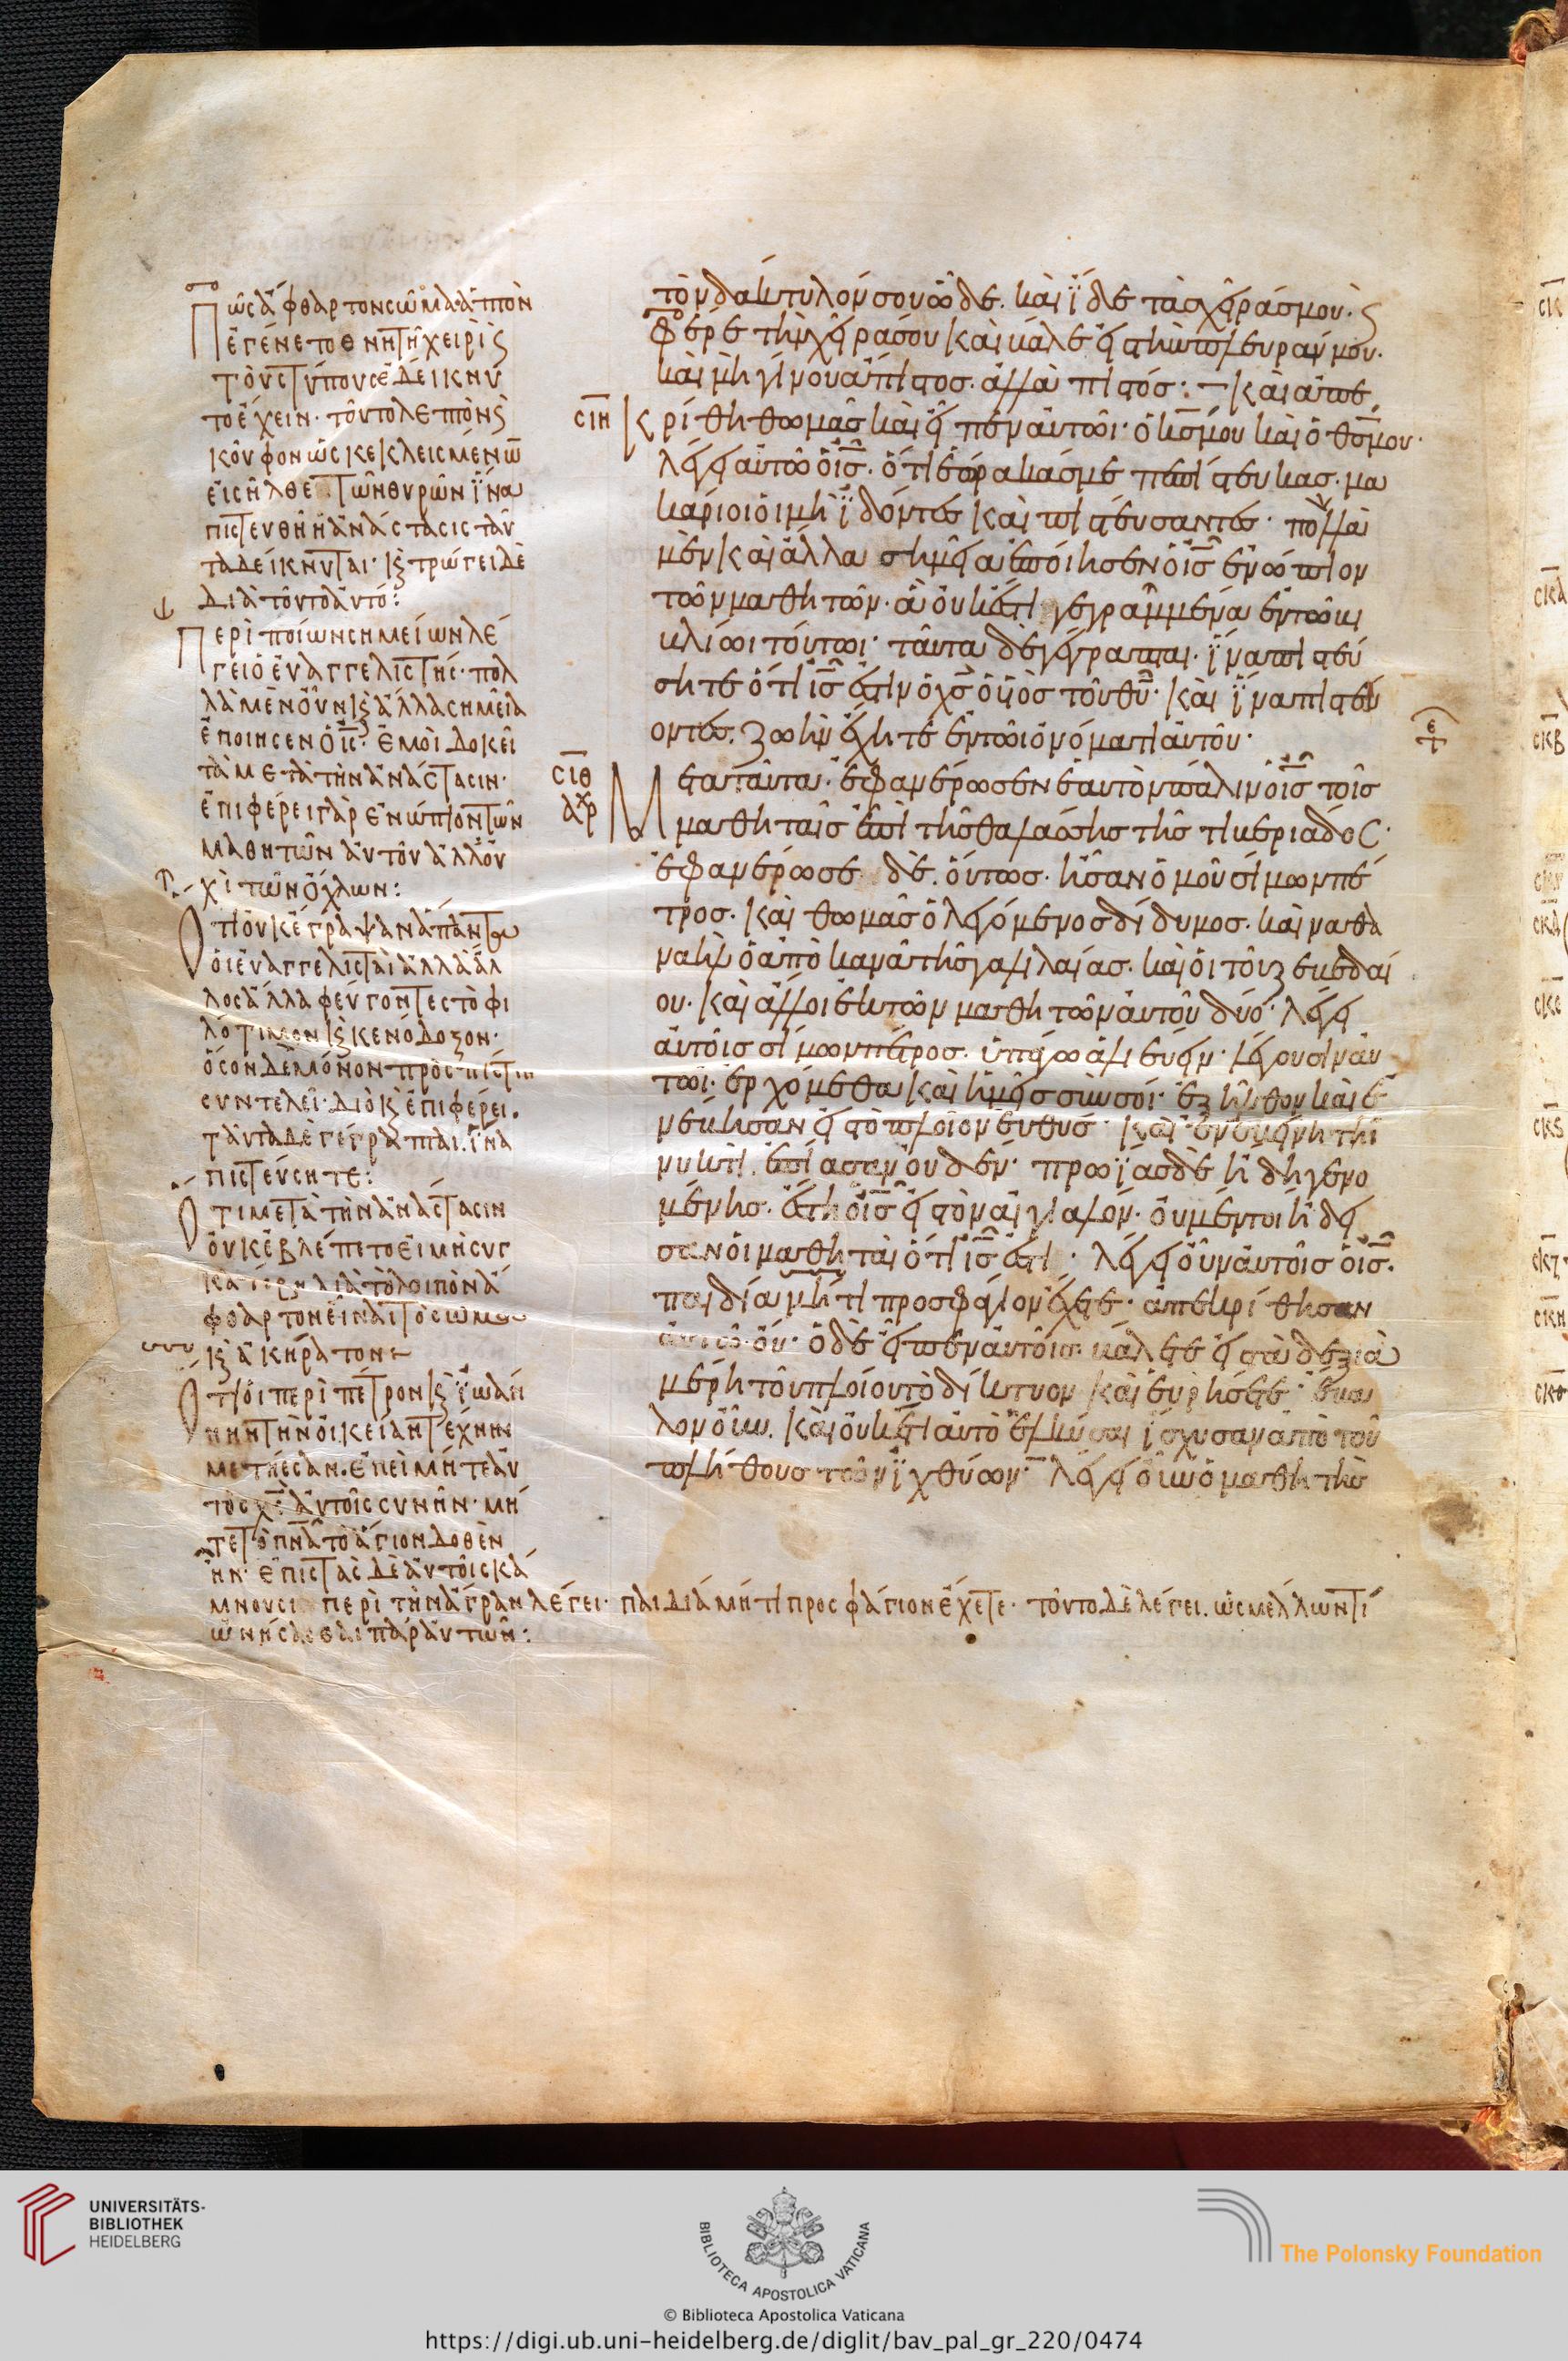 Πῶς ἄφθαρτον σῶμα ἅπτὸν
ἐγένετο θνητῆ χειρὶ ϗ
τοὺς τύπους ἐδείκνυ
το ἔχειν· τοῦτο λεπτὸν ϗ
κοῦφον ὡς κεκλεισμένω̅
εἰσῆλθε τῶν θυρῶν ἵνα
πιστευθῆ ἡ ἀνάστασις ταῦ
τα δείκνυται· ϗ τρώγει δὲ
διὰ τοῦτο αὐτό:
Περὶ ποίων σημείων λέ
γει ὁ εὐαγγελιστής· πολ
λὰ μὲν οὖν ϗ ἄλλα σημεῖα
ἐποίησεν ὁ ι̅ς̅· ἐμοὶ δοκεῖ
τὰ μετὰ τὴν ἀνάστασιν·
ἐπιφέρει γὰρ ἐνώπιον τῶν
μαθητῶν αὐτοῦ ἀλλ οὐ
χὶ τῶν ὄχλων:
Ὅτι οὐκ ἔγραψαν ἅπαντα
οἱ εὐαγγελισταὶ ἀλλὰ ἄλ
λος ἄλλα φεύγοντες τὸ φι
λότιμον ϗ κενόδοξον·
ὅσον δὲ μόνον πρὸς πίστιν
συντελεῖ· διὸ ϗ ἐπιφέρει.
ταῦτα δὲ γέγραπται. ἵνα
πιστεύσητε:
Ὅτι μετὰ τὴν ἀνάστασιν
οὐκ ἐβλέπετο εἰ μὴ συγ
φθαρτον εἶναι τὸ σῶμα
ϗ ἀκήρατον
Ὅτι οἱ περὶ πέτρον ϗ ἰωάν
νην τὴν οἰκείαν τέχνην
μετήεσαν. ἐπεὶ μήτε αὐ
τὸς χ̅ς̅ αὐτοῖς συνῆν· μή
τε τὸ πνα τὸ ἅγιον δοθὲν
ἦν· ἐπιστὰς δὲ αὐτοῖς κά
μνουσι περὶ τὴν ἄγραν λέγει· παιδία μή τι προσφάγιον ἔχετε· τοῦτο δὲ λέγει. ὡς μέλλων τί
ὠνήσασθαι παρ αὐτῶν:
τὸν δάκτυλόν σου ὧδε. καὶ ἴδε τὰς χεῖράς μου· ϗ
φέρε τὴν χεῖρά σου καὶ βάλε εἰς τὴν πλευράν μου·
καὶ μὴ γίνου ἄπιστος. ἀλλὰ πιστός: καὶ ἀπε
σ̅ι̅η̅ κρίθη θωμᾶς καὶ εἶπεν αὐτῶι· ὁ κ̅ς̅ μου καὶ ὁ θ̅ς̅ μου·
λέγει αὐτῶ ὁ ι̅ς̅. ὅτι ἑώρακάς με πεπίστευκας. μα
κάριοι οἱ μὴ ἰδόντες καὶ πιστεύσαντες· πολλὰ
μὲν καὶ ἄλλα σημεῖα ἐποίησεν ὁ ι̅ς̅ ἐνώπιον
τῶν μαθητῶν. ἃ οὐκ ἔστι γεγραμμένα ἐν τῶ βι
βλίωι τούτωι· ταῦτα δὲ γέγραπται. ἵνα πιστεύ
σητε ὅτι ι̅ς̅ ἐστὶν ὁ χ̅ς̅ ὁ υἱὸς τοῦ θ̅υ̅· καὶ ἵνα πιστεύ
οντες. ζωὴν ἔχητε ἐν τῶι ὀνόματι αὐτοῦ·
σ̅ι̅θ̅ Μετὰ ταῦτα. ἐφανέρωσεν ἑαυτὸν πάλιν ὁ ι̅ς̅ τοῖς
αρχ μαθηταῖς ἐπὶ τῆς θαλάσσης τῆς τιβεριάδος·
ἐφανέρωσε δὲ. οὕτως. ἦσαν ὁμοῦ σίμων πέ
τρος. καὶ θωμᾶς ὁ λεγόμενος δίδυμος. καὶ ναθα
ναὴλ ὁ ἀπὸ κανᾶ τῆς γαλιλαίας. καὶ οἱ τοῦ ζεβεδαί
ου. καὶ ἄλλοι ἐκ τῶν μαθητῶν αὐτοῦ δύο· λέγει
αὐτοῖς σίμων πέτρος. ὑπάγω ἁλιεύειν· λέγουσιν αὐ
τῶι· ἐρχόμεθα καὶ ἡμεῖς σὺν σοί· ἐξῆλθον καὶ ἐ
νέβησαν εἰς τὸ πλοῖον εὐθύς· καὶ ἐν ἐκείνη τῆ
νυκτὶ. ἐπίασαν οὐδέν· πρωΐας δὲ ἤδη γενο
μένης. ἔστη ὁ ι̅ς̅ εἰς τὸν αἰγιαλόν. οὐ μέντοι ἤδει
σαν οἱ μαθηταὶ ὅτι ι̅ς̅ ἐστι· λέγει οὖν αὐτοῖς ὁ ι̅ς̅.
παιδία μή τι προσφάγιον ἔχετε· ἀπεκρίθησαν
αὐτῶ· οὔ· ὁ δὲ εἶπεν αὐτοῖς· βάλετε εἰς τὰ δεξιὰ
μέρη τοῦ πλοίου τὸ δίκτυον καὶ εὑρήσετε· ἔβα
λον οὖν. καὶ οὐκέτι αὐτὸ ἑλκύσαι ἴσχυσαν ἀπὸ τοῦ
πλήθους τῶν ἰχθύων· λέγει οὖν ὁ μαθητὴς
UNIVERSITÄTS-
BIBLIOTHEK
HEIDELBERG
BIBLIOTECA APOSTOLICA VATICANA
The Polonsky Foundation
© Biblioteca Apostolica Vaticana
https://digi.ub.uni-heidelberg.de/diglit/bav_pal_gr_220/0474